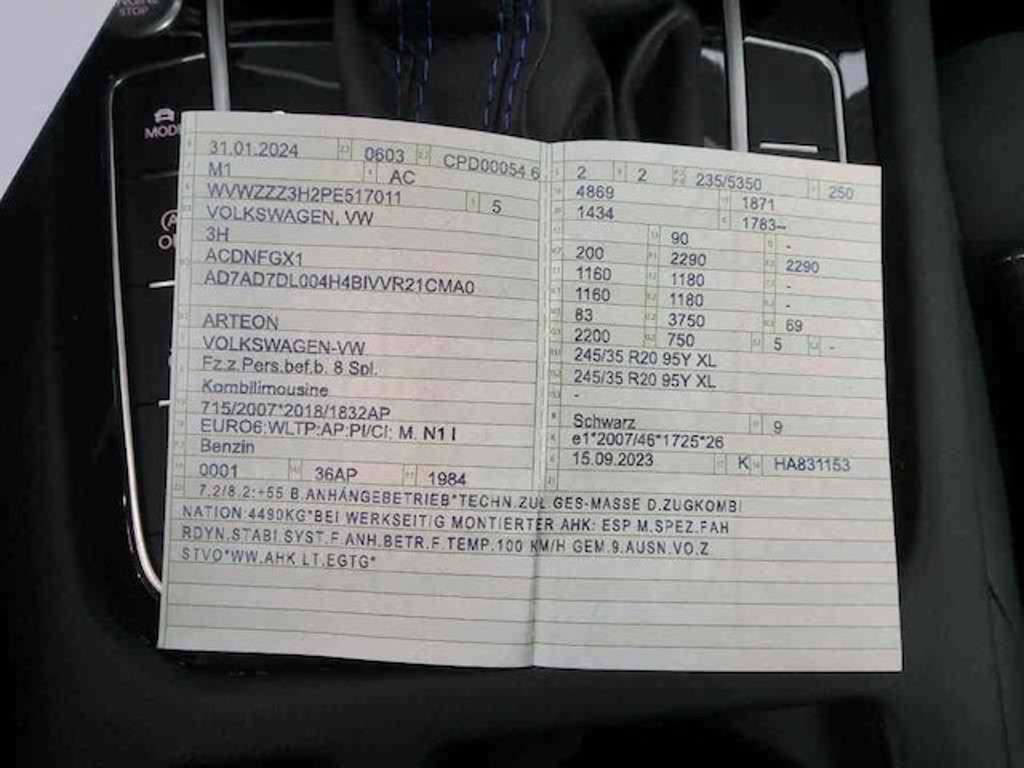 STOP
MODE
31.01.2024 0603 CPD00054 6
M1 AC
WVWZZZ3H2PE517011 5
VOLKSWAGEN, VW
3H
ACDNFGX1
AD7AD7DL004H4BIVVR21CMA0
ARTEON
VOLKSWAGEN-VW
Fz.z.Pers.bef.b. 8 Spl.
Kombilimousine
715/2007*2018/1832AP
EURO6;WLTP;AP;PI/CI; M, N1 I
Benzin
0001 36AP 1984
2 2 235/5350 250
4869 1871
1434 1783–
90 -
200 2290 2290
1160 1180 -
1160 1180 -
83 3750 69
2200 750 5 -
245/35 R20 95Y XL
245/35 R20 95Y XL
-
Schwarz 9
e1*2007/46*1725*26
15.09.2023 K HA831153
7.2/8.2:+55 B.ANHÄNGEBETRIEB*TECHN.ZUL GES-MASSE D.ZUGKOMBI
NATION:4490KG*BEI WERKSEITIG MONTIERTER AHK: ESP M.SPEZ.FAH
RDYN.STABI.SYST.F.ANH.BETR.F.TEMP.100 KM/H GEM.9.AUSN.VO.Z
STVO*WW.AHK LT.EGTG*